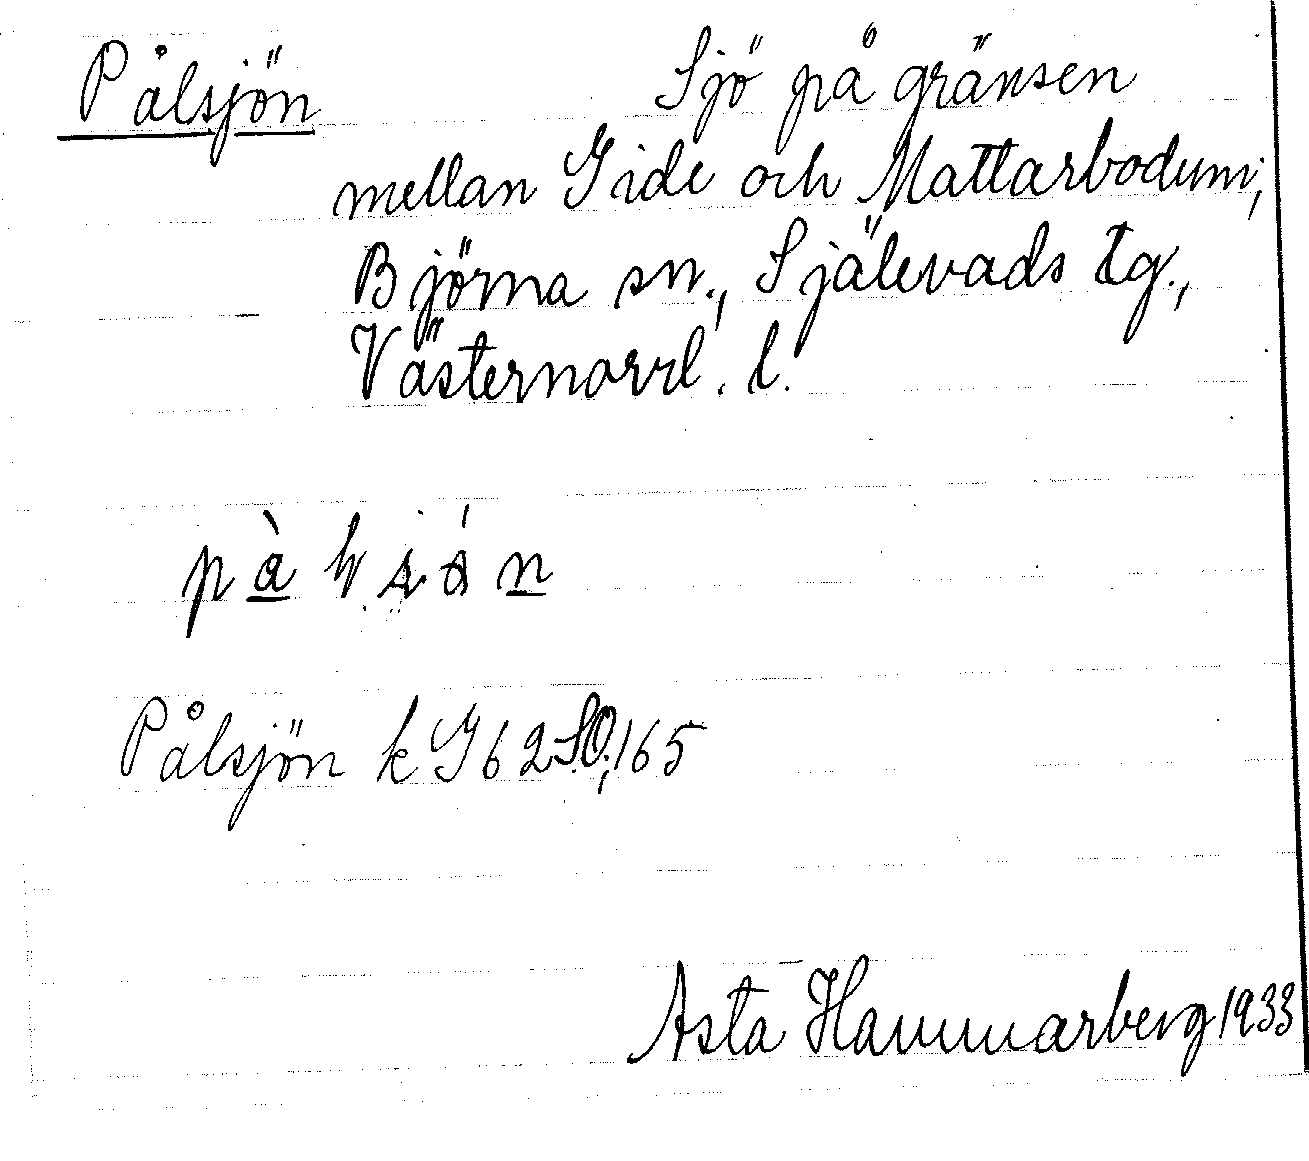 Pålsjön Sjö på gränsen
mellan Gide och Mattarbodum,
Björna sn., Själevads tg.,
Västernorrl. l.
Pålsjön k G 62 SO; 165
Asta Hammarberg 1933